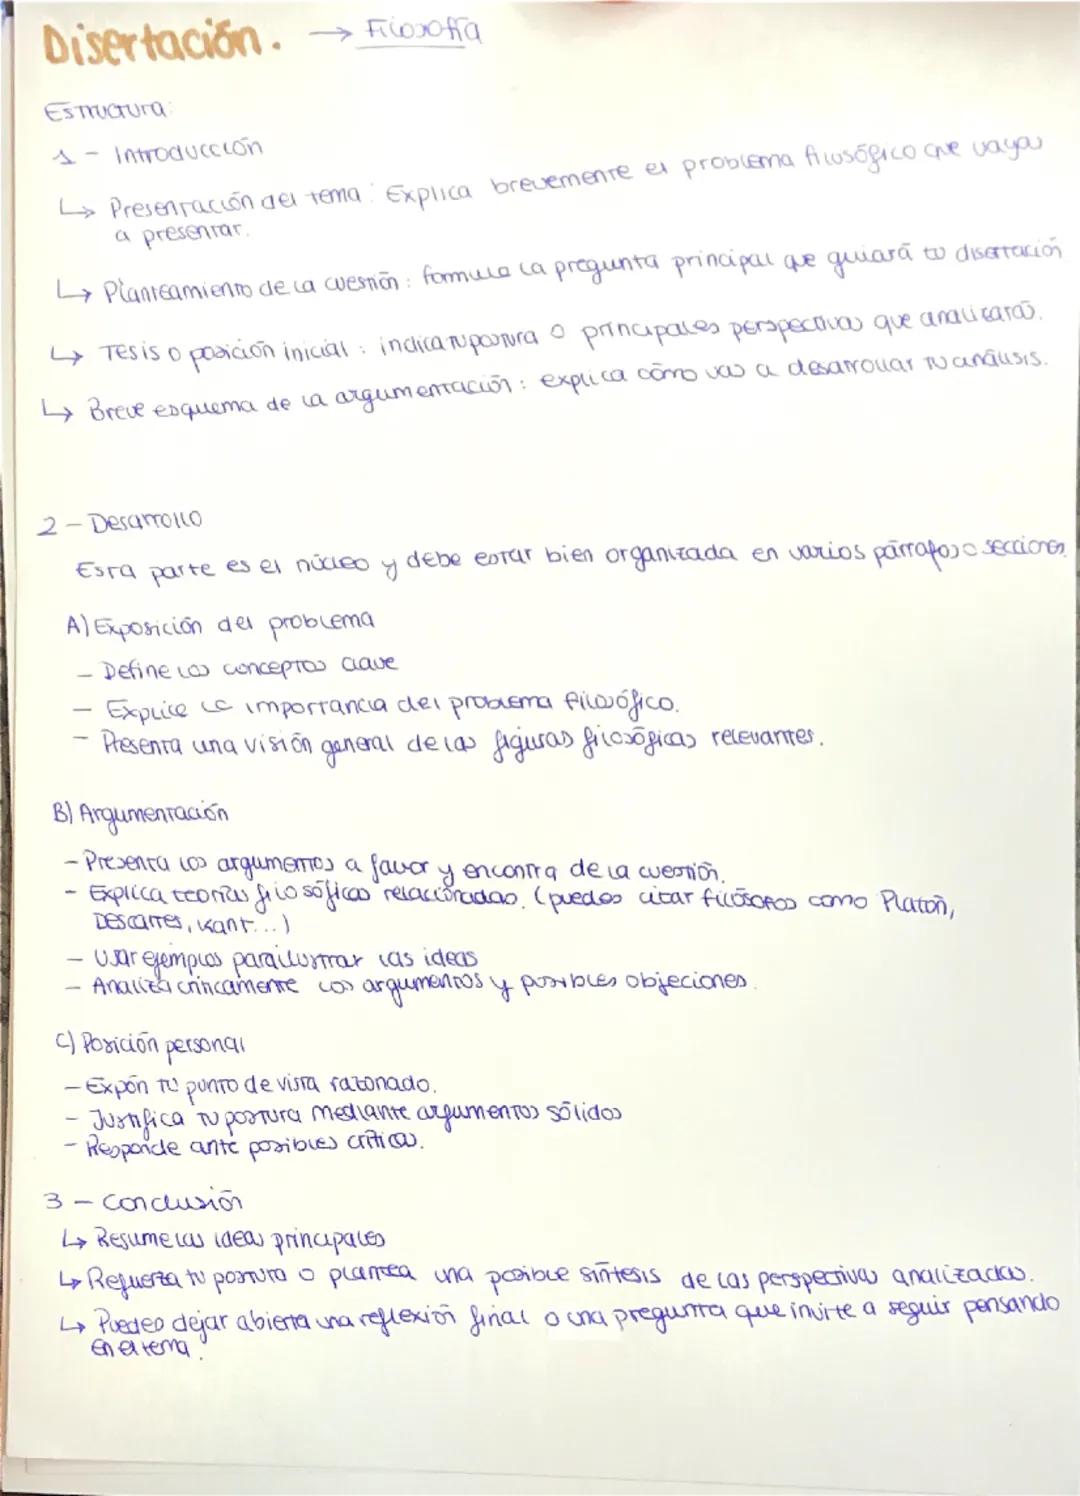 Disertación. → Filosofía
Estructura:
1 - Introducción
↳ Presentación del tema: Explica brevemente el problema filosófico que vayas
a presentar.
↳ Planteamiento de la cuestión: formula la pregunta principal que guiará tu disertación
↳ Tesis o posición inicial: indica tu postura o principales perspectivas que analizarás.
↳ Breve esquema de la argumentación: explica cómo vas a desarrollar tu análisis.
2 - Desarrollo
Esta parte es el núcleo y debe estar bien organizada en varios párrafos o secciones.
A) Exposición del problema
- Define los conceptos clave
- Explica la importancia del problema filosófico.
- Presenta una visión general de las figuras filosóficas relevantes.
B) Argumentación
- Presenta los argumentos a favor y encontra de la cuestión.
- Explica teorías filosóficas relacionadas. (puedes citar filósofos como Platón,
Descartes, Kant...)
- Usar ejemplos para ilustrar las ideas
- Analiza críticamente los argumentos y posibles objeciones.
C) Posición personal
- Expón tu punto de vista razonado.
- Justifica tu postura mediante argumentos sólidos
- Responde ante posibles críticas.
3 - Conclusión
↳ Resume las ideas principales
↳ Refuerza tu postura o plantea una posible síntesis de las perspectivas analizadas.
↳ Puedes dejar abierta una reflexión final o una pregunta que invite a seguir pensando
en el tema.